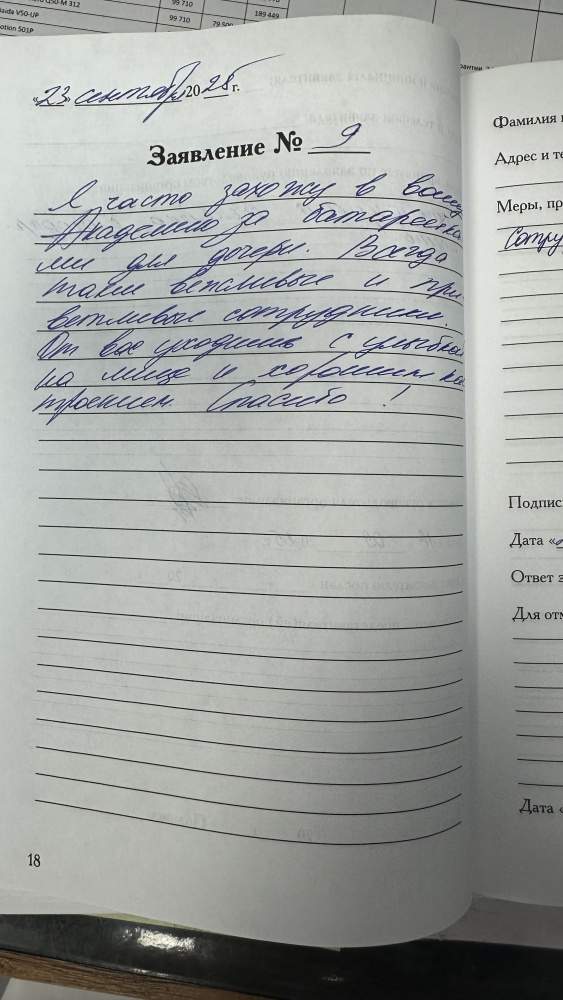 Q50-M 312 99 710
aida V50-UP 99 710 189 449
otion 501P 79 500
«23» сентября 2025 г.
Заявление № 9
Я часто захожу в вашу
Академию за батарейка
ми для дочери. Всегда
такие вежливые и при-
ветливые сотрудники.
От вас уходишь с улыбкой
на лице и хорошим на
троением. Спасибо !
18
Фамилия
Адрес и те
Меры, пр
Сотру
Подпис
Дата «
Ответ з
Для отм
Дата «